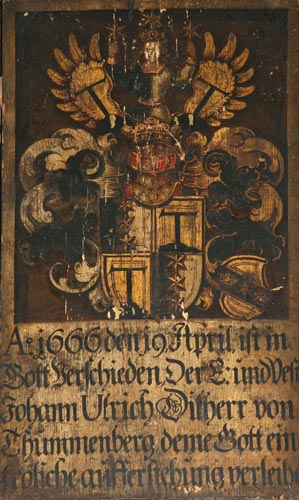 A: 1666 den 19 April, ist in
Gott Verschieden Der E: und Vest
Johann Ulrich Dilherr von
Thummenberg deme Gott ein
fröliche aufferstehung verleihe